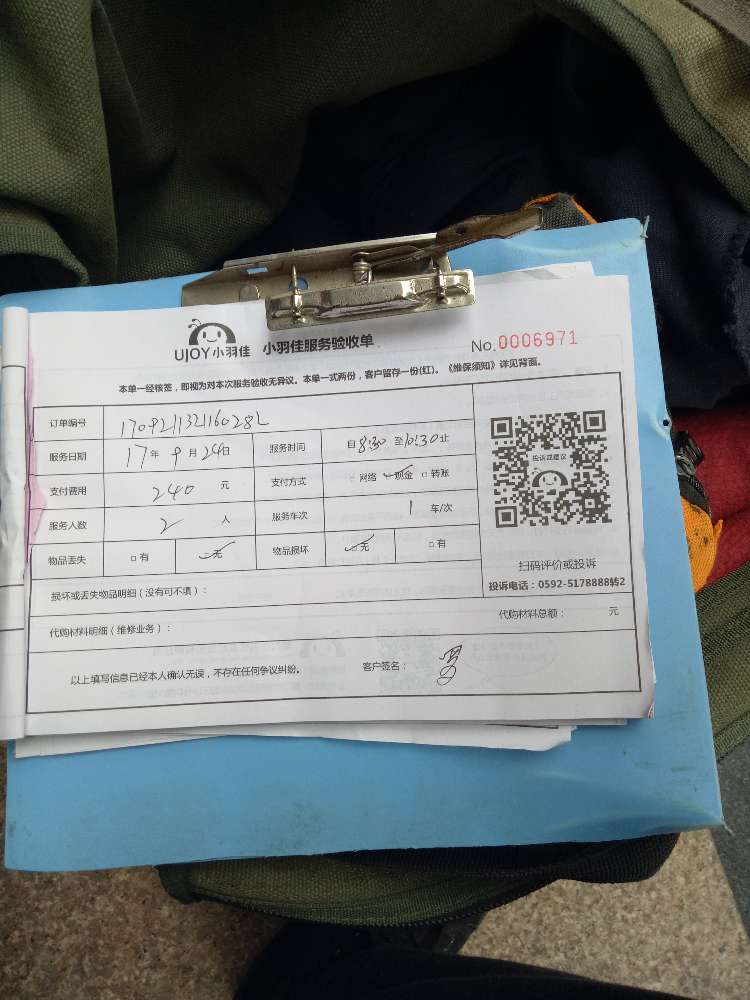 UJOY小羽佳 小羽佳服务验收单 No.0006971
本单一经核签，即视为对本次服务验收无异议。本单一式两份，客户留存一份(红)。《维保须知》详见背面。
订单编号 17092113216028L
服务日期 17年9月24日 服务时间 自8:30至10:30止
支付费用 240元 支付方式 □网络 ☑现金 □转账
服务人数 2人 服务车次 1车/次
物品丢失 □有 ☑无 物品损坏 ☑无 □有
投诉或建议
扫码评价或投诉
投诉电话：0592-5178888转2
损坏或丢失物品明细（没有可不填）：
代购材料明细（维修业务）： 代购材料总额： 元
以上填写信息已经本人确认无误，不存在任何争议纠纷。 客户签名：